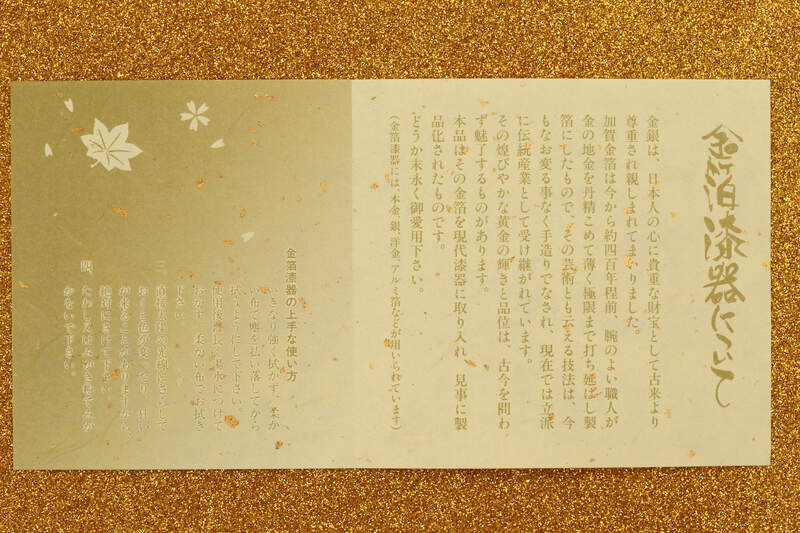 金箔漆器について
金銀は、日本人の心に貴重な財宝として古来より
尊重され親しまれてまいりました。
加賀金箔は今から約四百年程前、腕のよい職人が
金の地金を丹精こめて薄く極限まで打ち延ばし製
箔にしたもので、その芸術とも云える技法は、今
もなお変る事なく手造りでなされ、現在では立派
に伝統産業として受け継がれています。
その煌びやかな黄金の輝きと品位は、古今を問わ
ず魅了するものがあります。
本品はその金箔を現代漆器に取り入れ、見事に製
品化されたものです。
どうか末永く御愛用下さい。
(金箔漆器には、本金、銀、洋金、アルミ箔などが用いられています)
金箔漆器の上手な使い方
いきなり強く拭かず、柔か
い布で塵を払い落してから
拭くようにして下さい。
使用後は長く湯水につけて
おかず、柔かい布でお拭き
下さい。
三、直接太陽の光線にさらして
おくと色が変ったり、
絶対にさけて下さい。
四、たわしや
かないで下さい。